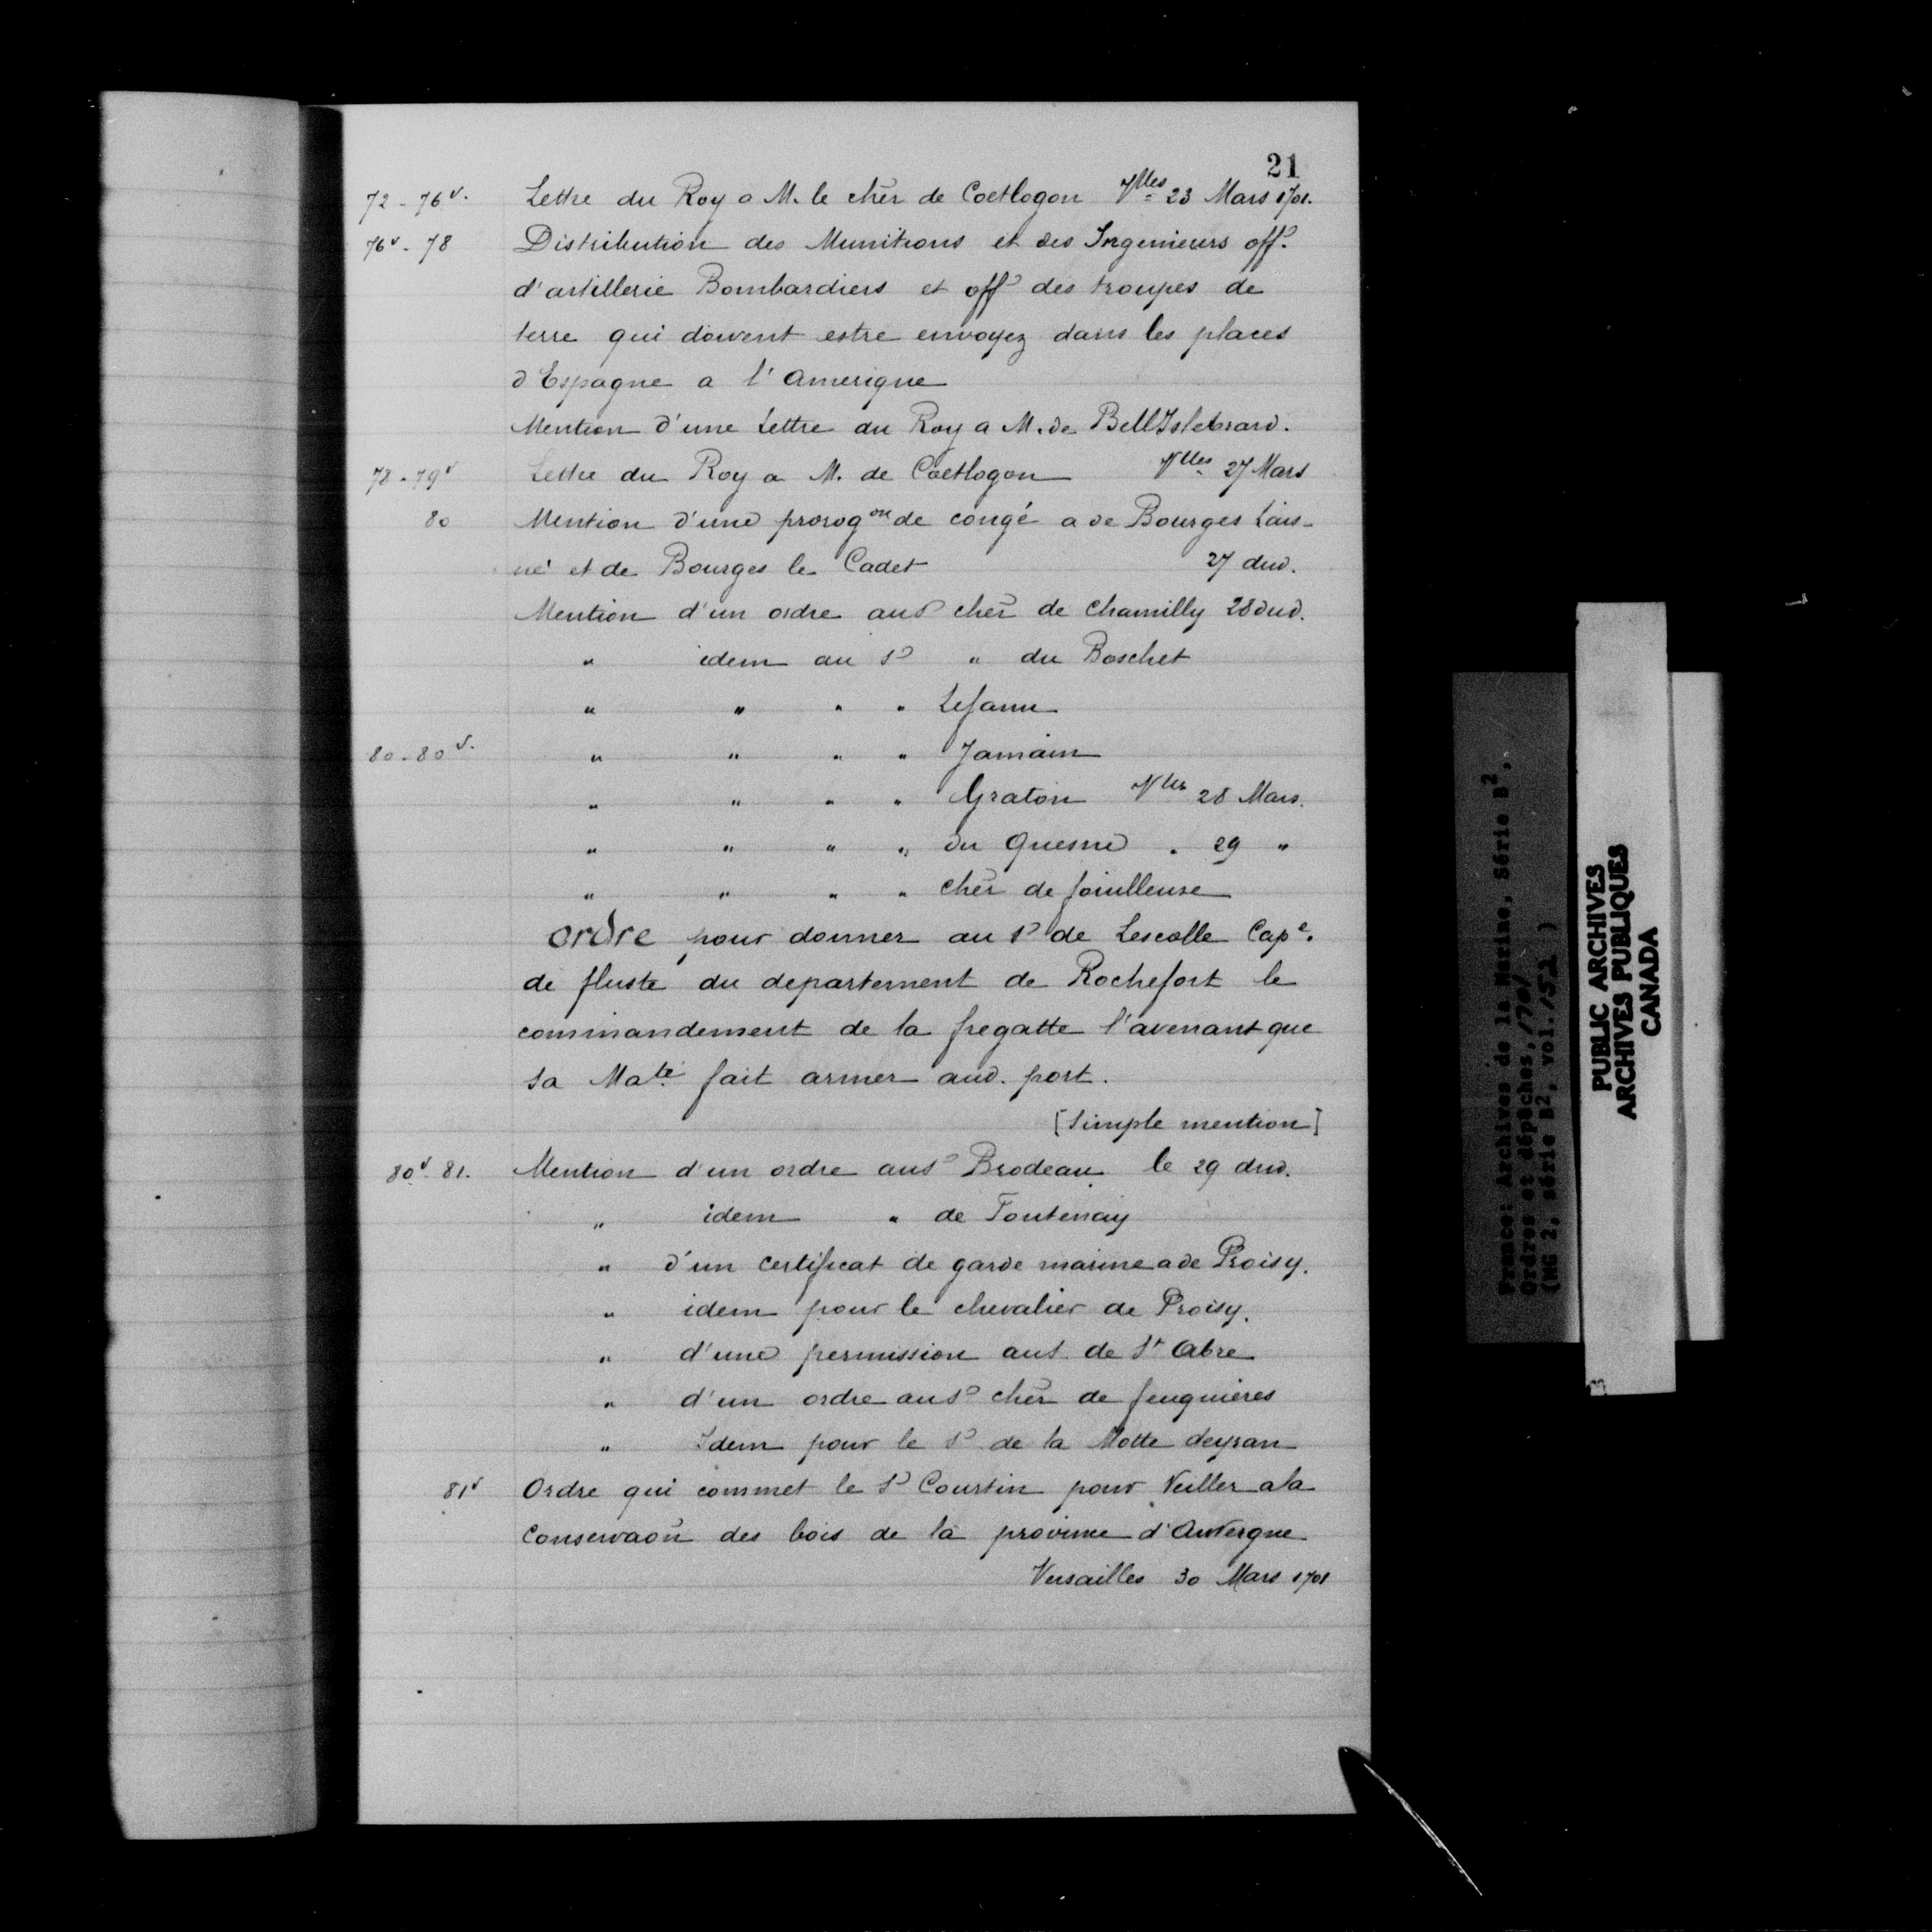 21
72 - 76v. Lettre du Roy a M. le cher de Coetlogon Vlles 23 Mars 1701.
76v - 78 Distribution des Munitions et des Ingenieurs offrs
d'artillerie Bombardiers et offrs des troupes de
terre qui doivent estre envoyez dans les places
d'Espagne a l'Amerique
Mention d'une Lettre du Roy a M. de BellIsleErard.
78 - 79v Lettre du Roy a M. de Coetlogon Vlles 27 Mars
80 Mention d'une prorogon de congé a de Bourges Lais-
né et de Bourges le Cadet 27 dud.
Mention d'un ordre au Sr cher de Chamilly 28 dud.
" idem au Sr " du Boschet
" " " " Lefanu
80 - 80v. " " " " Jamain
" " " " Graton Vlles 28 Mars.
" " " " du Quesne " 29 "
" " " " cher de fouilleuse
ordre pour donner au Sr de Lescolle Cape.
de fluste du departement de Rochefort le
commandement de la fregatte l'avenant que
sa Maté fait armer aud. port.
[Simple mention]
80v - 81. Mention d'un ordre au Sr Brodeau le 29 dud.
" idem " de Fontenay
" d'un certificat de garde marine a de Proisy.
" idem pour le chevalier de Proisy.
" d'une permission au S. de St Abre
" d'un ordre au Sr cher de feuquieres
" Idem pour le Sr de la Motte deyran
81v Ordre qui commet le Sr Courtin pour Veiller a la
Conservaon des bois de la province d'Auvergne
Versailles 30 Mars 1701
France: Archives de la Marine, Série B2,
Ordres et dépêches, 1701
(MG 2, série B2, vol. 152 )
PUBLIC ARCHIVES
ARCHIVES PUBLIQUES
CANADA